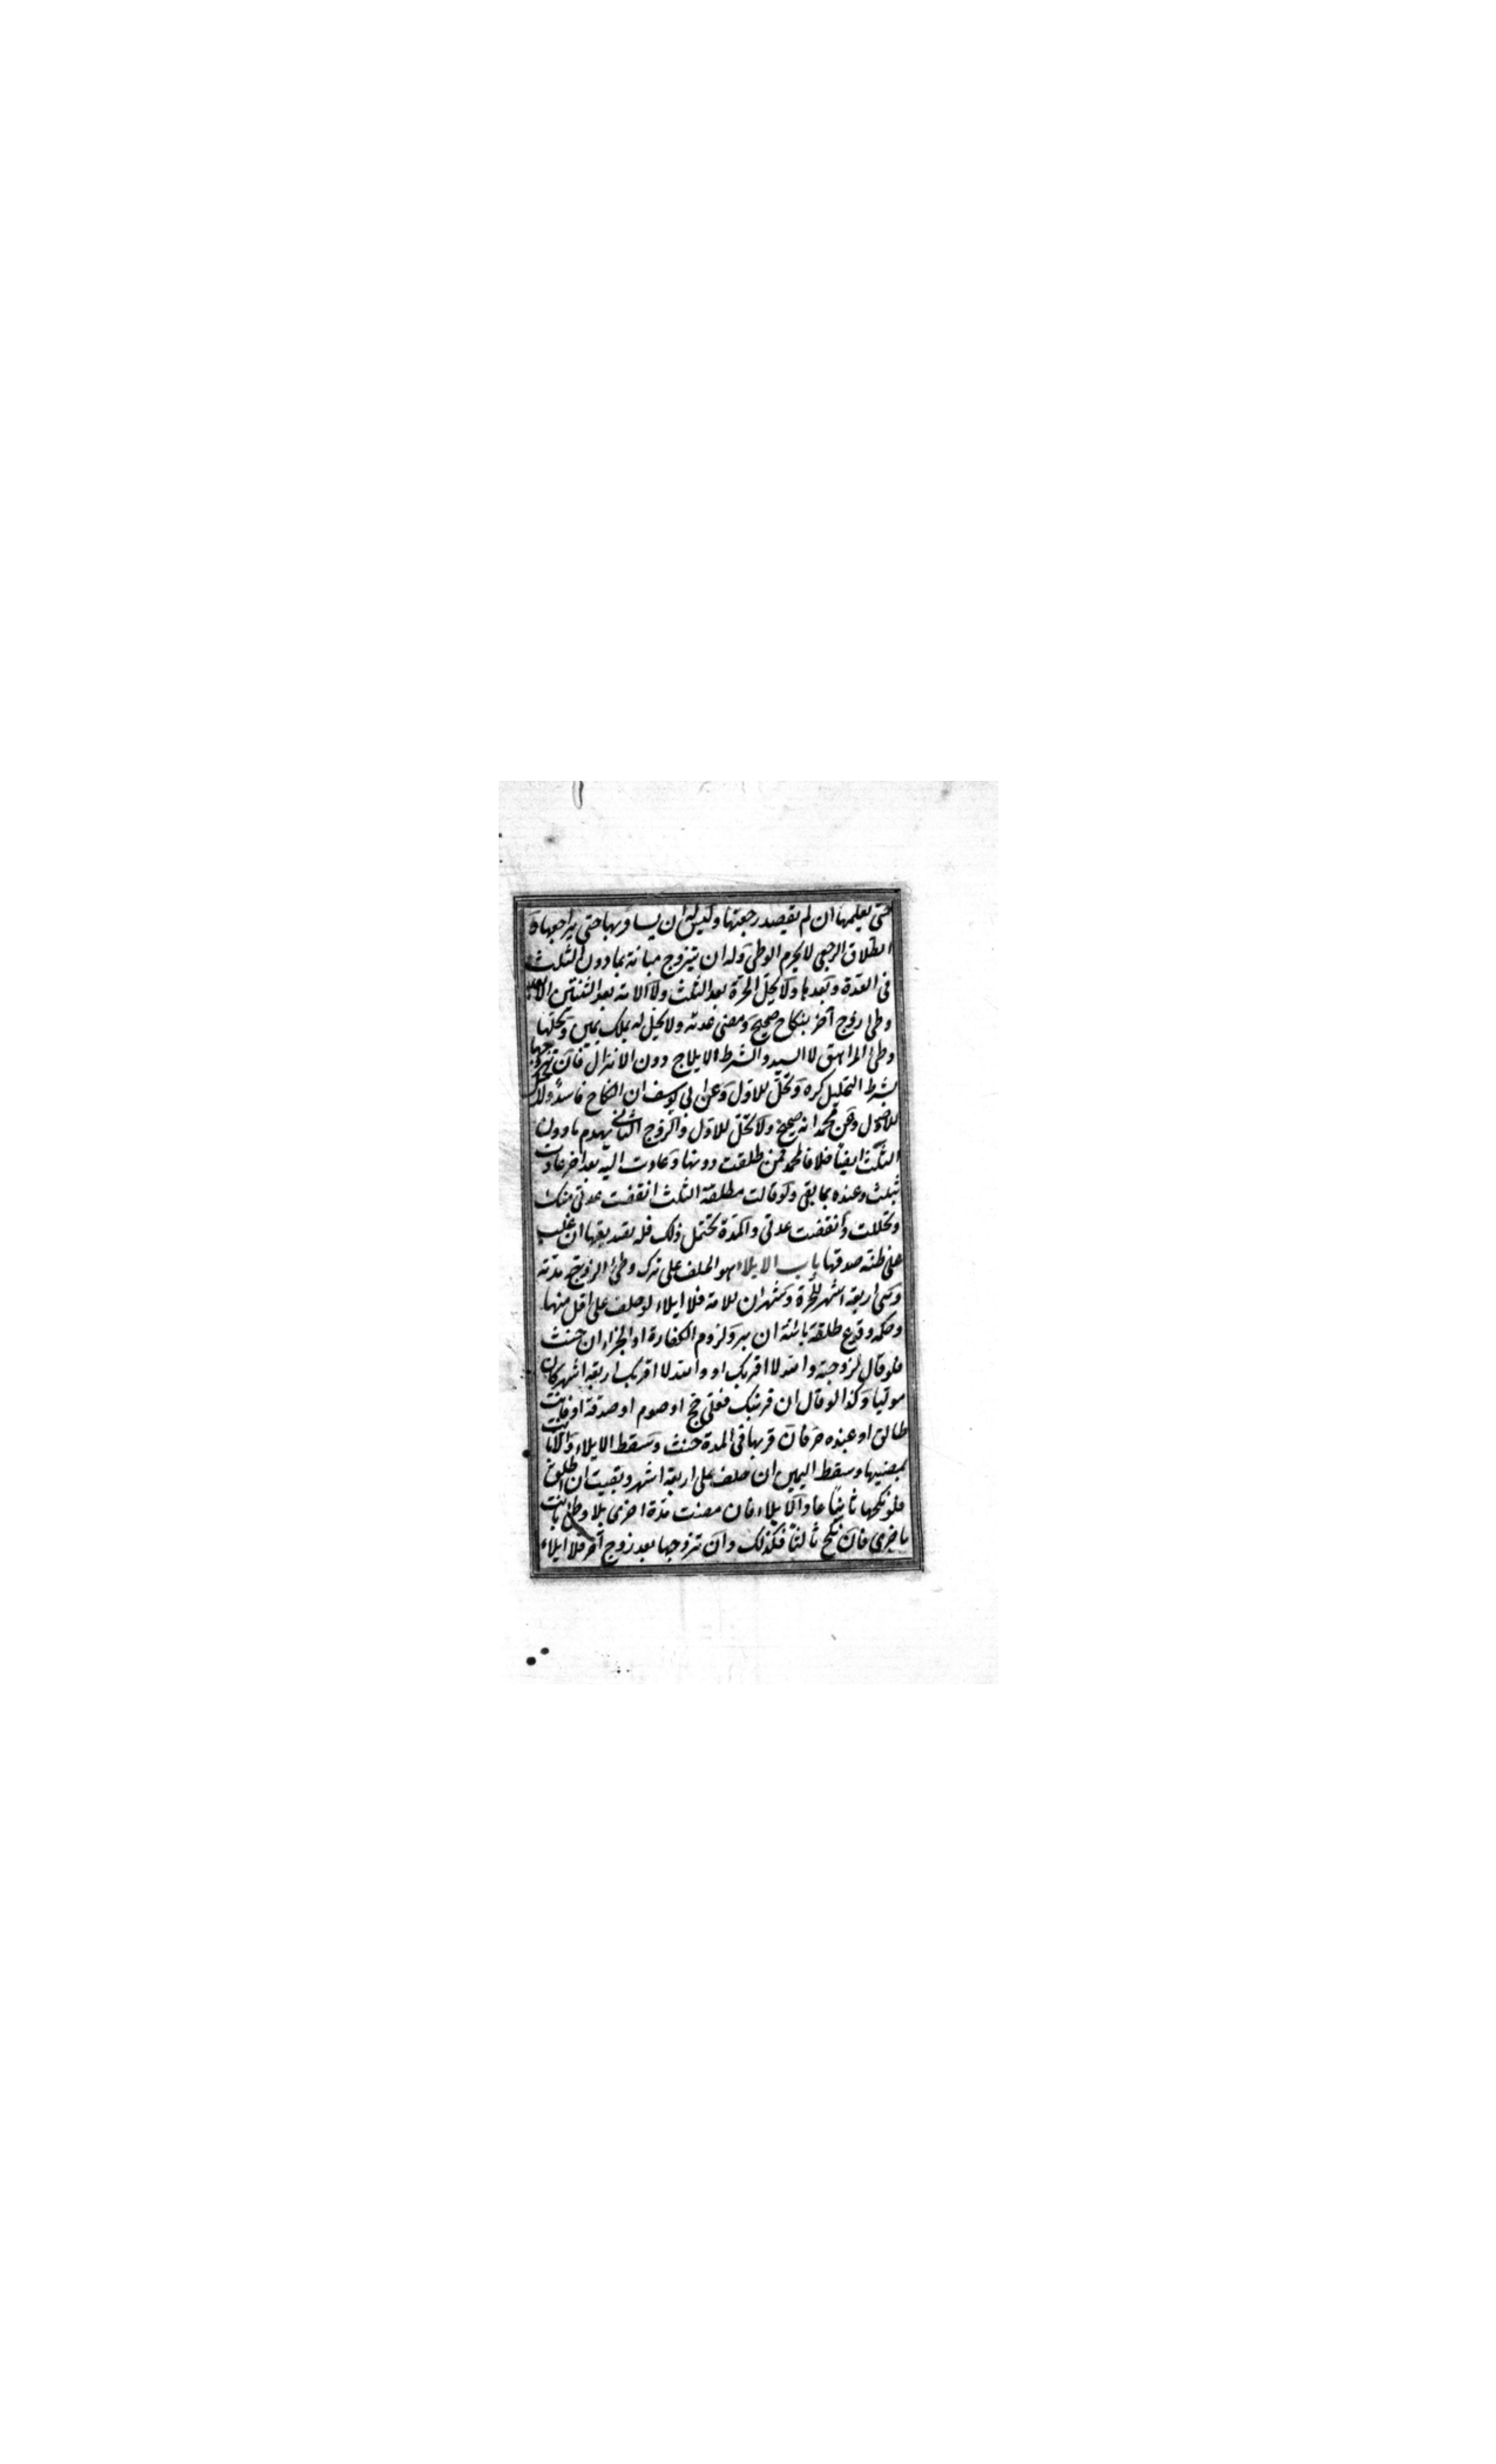 حتى يعلمها ان لم يقصد رجعتها وليس له ان يسافر بها حتى يراجعها و
الطلاق الرجعي لا يحرم الوطئ وله ان يتزوج مبانة بما دون الثلث
في العدة وبعدها ولا تحل الحرة بعد الثلث ولا الامة بعد الثنتين الا بعد
وطئ زوج آخر بنكاح صحيح ومضى عدته ولا تحل له بملك يمين ويحلها
وطئ المراهق لا السيد والشرط الايلاج دون الانزال فان تزوجها
بشرط التحليل كره وتحل للاول وعن ابى يوسف ان النكاح فاسد ولا تحل
للاول وعن محمد انه صحيح ولا تحل للاول والزوج الثاني يهدم ما دون
الثلث ايضا خلافا لمحمد فمن طلقت دونها وعادت اليه بعد آخر عادت
بثلث وعنده بما بقى ولو قالت مطلقة الثلث انقضت عدتي منك
وتحللت وانقضت عدتي والمدة تحتمل ذلك فله تصديقها ان غلب
على ظنه صدقها باب الايلاء هو الحلف على ترك وطئ الزوجة مدته
وهى اربعة اشهر للحرة وشهران للامة فلا ايلاء لو حلف على اقل منها
وحكمه وقوع طلقة بائنة ان بر ولزوم الكفارة او الجزاء ان حنث
فلو قال لزوجته والله لا اقربك او والله لا اقربك اربعة اشهر كان
موليا وكذا لو قال ان قربتك فعلى حج او صوم او صدقة او فانت
طالق او عبده حر فان قربها في المدة حنث وسقط الايلاء والا بانت
بمضيها وسقط اليمين ان حلف على اربعة اشهر وبقيت ان اطلق
فلو نكحها ثانيا عاد الايلاء فان مضت مدة اخرى بلا وطئ بانت
باخرى فان نكح ثالثا فكذلك وان تزوجها بعد زوج آخر فلا ايلاء